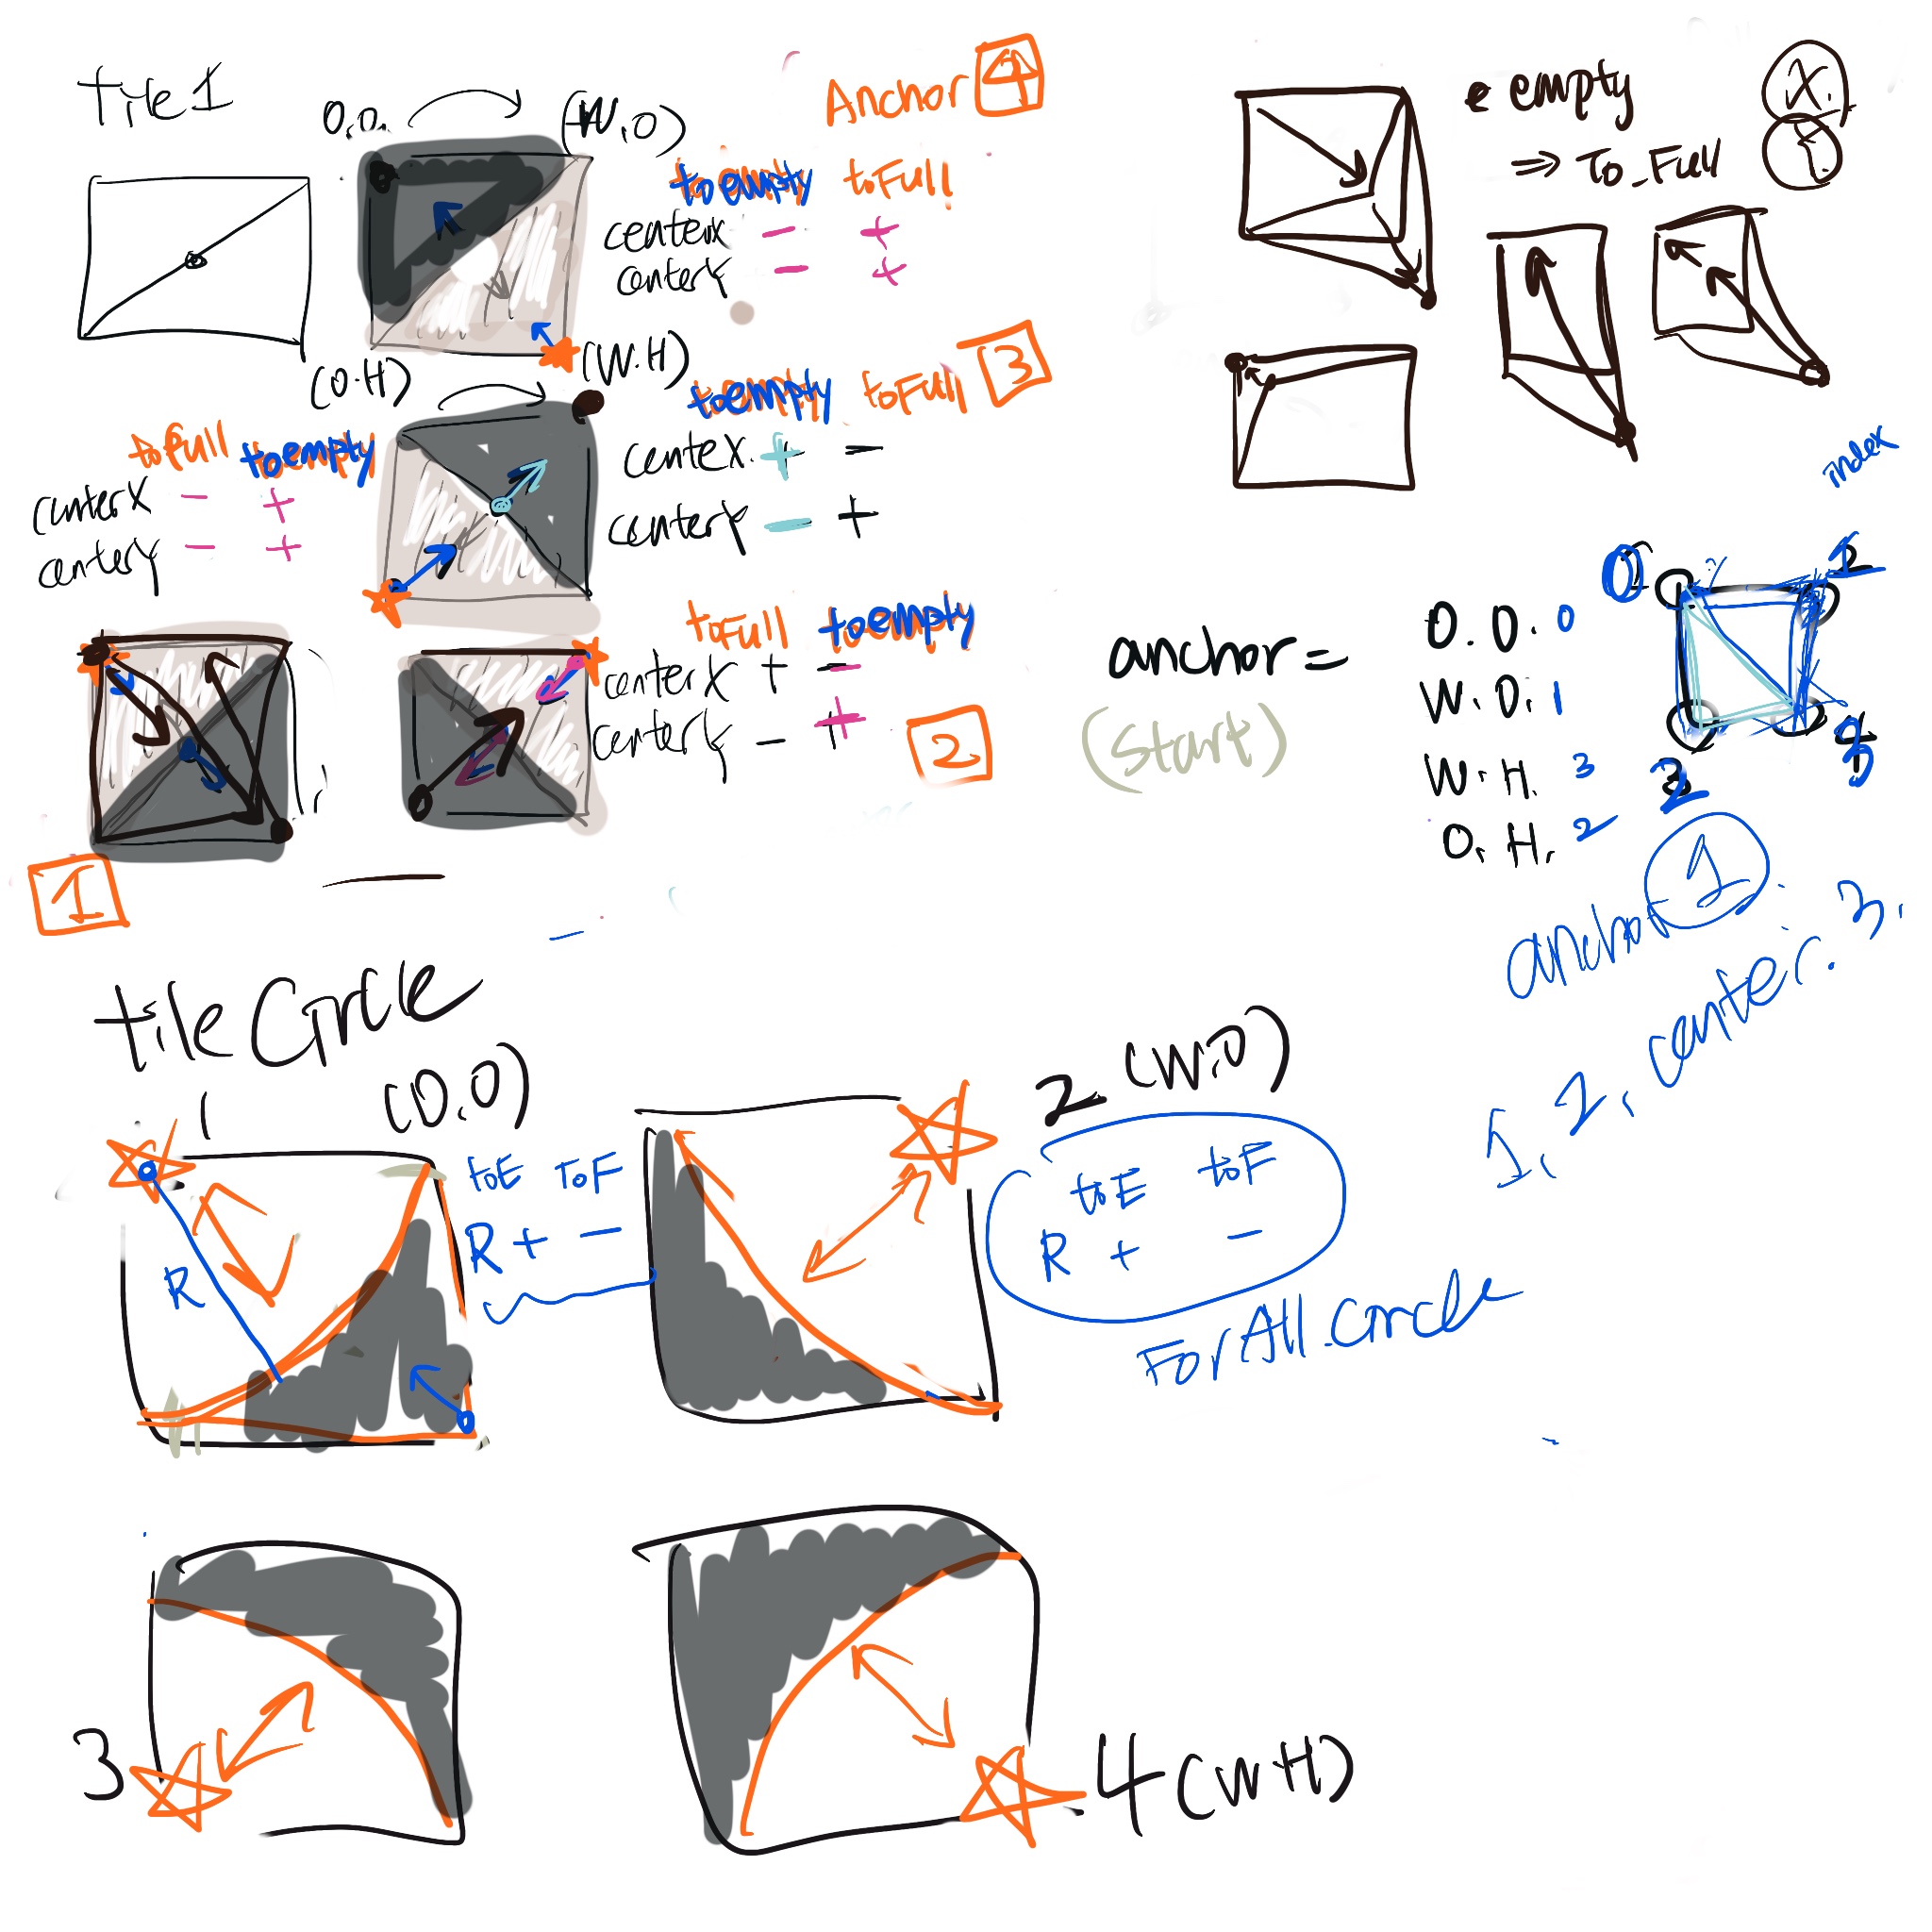 tile 1
0.0.
(W.0)
Anchor 4
toempty toFull
centerx - +
centerY - +
(0.H)
(W.H)
toempty toFull 3
centeX. + -
centerY - +
toFull toempty
centerX - +
centerY - +
toFull toempty
centerX + -
centerY - +
2
1
e empty
⇒ To_Full
X.
Y
index
anchor =
(Start)
0.0. 0
W.0. 1
W.H. 3
0.H. 2
0
1
2
3
anchor 1
1, 2, center. 3.
tile Circle
1 (0,0)
toE ToF
R + -
R
2. (W.0)
toE toF
R + -
For All Circle
3
4 (W H)